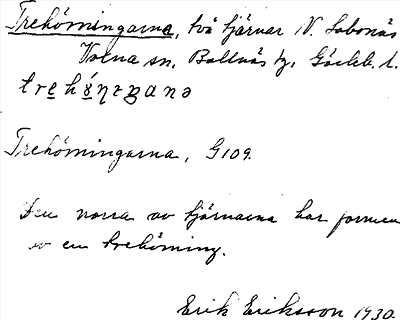 Trehörningarna, två tjärnar N. Lobonäs
Voxna sn, Bollnäs tg, Gävleb. l.
Trehörningarna, G109.
Den norra av tjärnarna har formen
av en trehörning.
Erik Eriksson 1930.